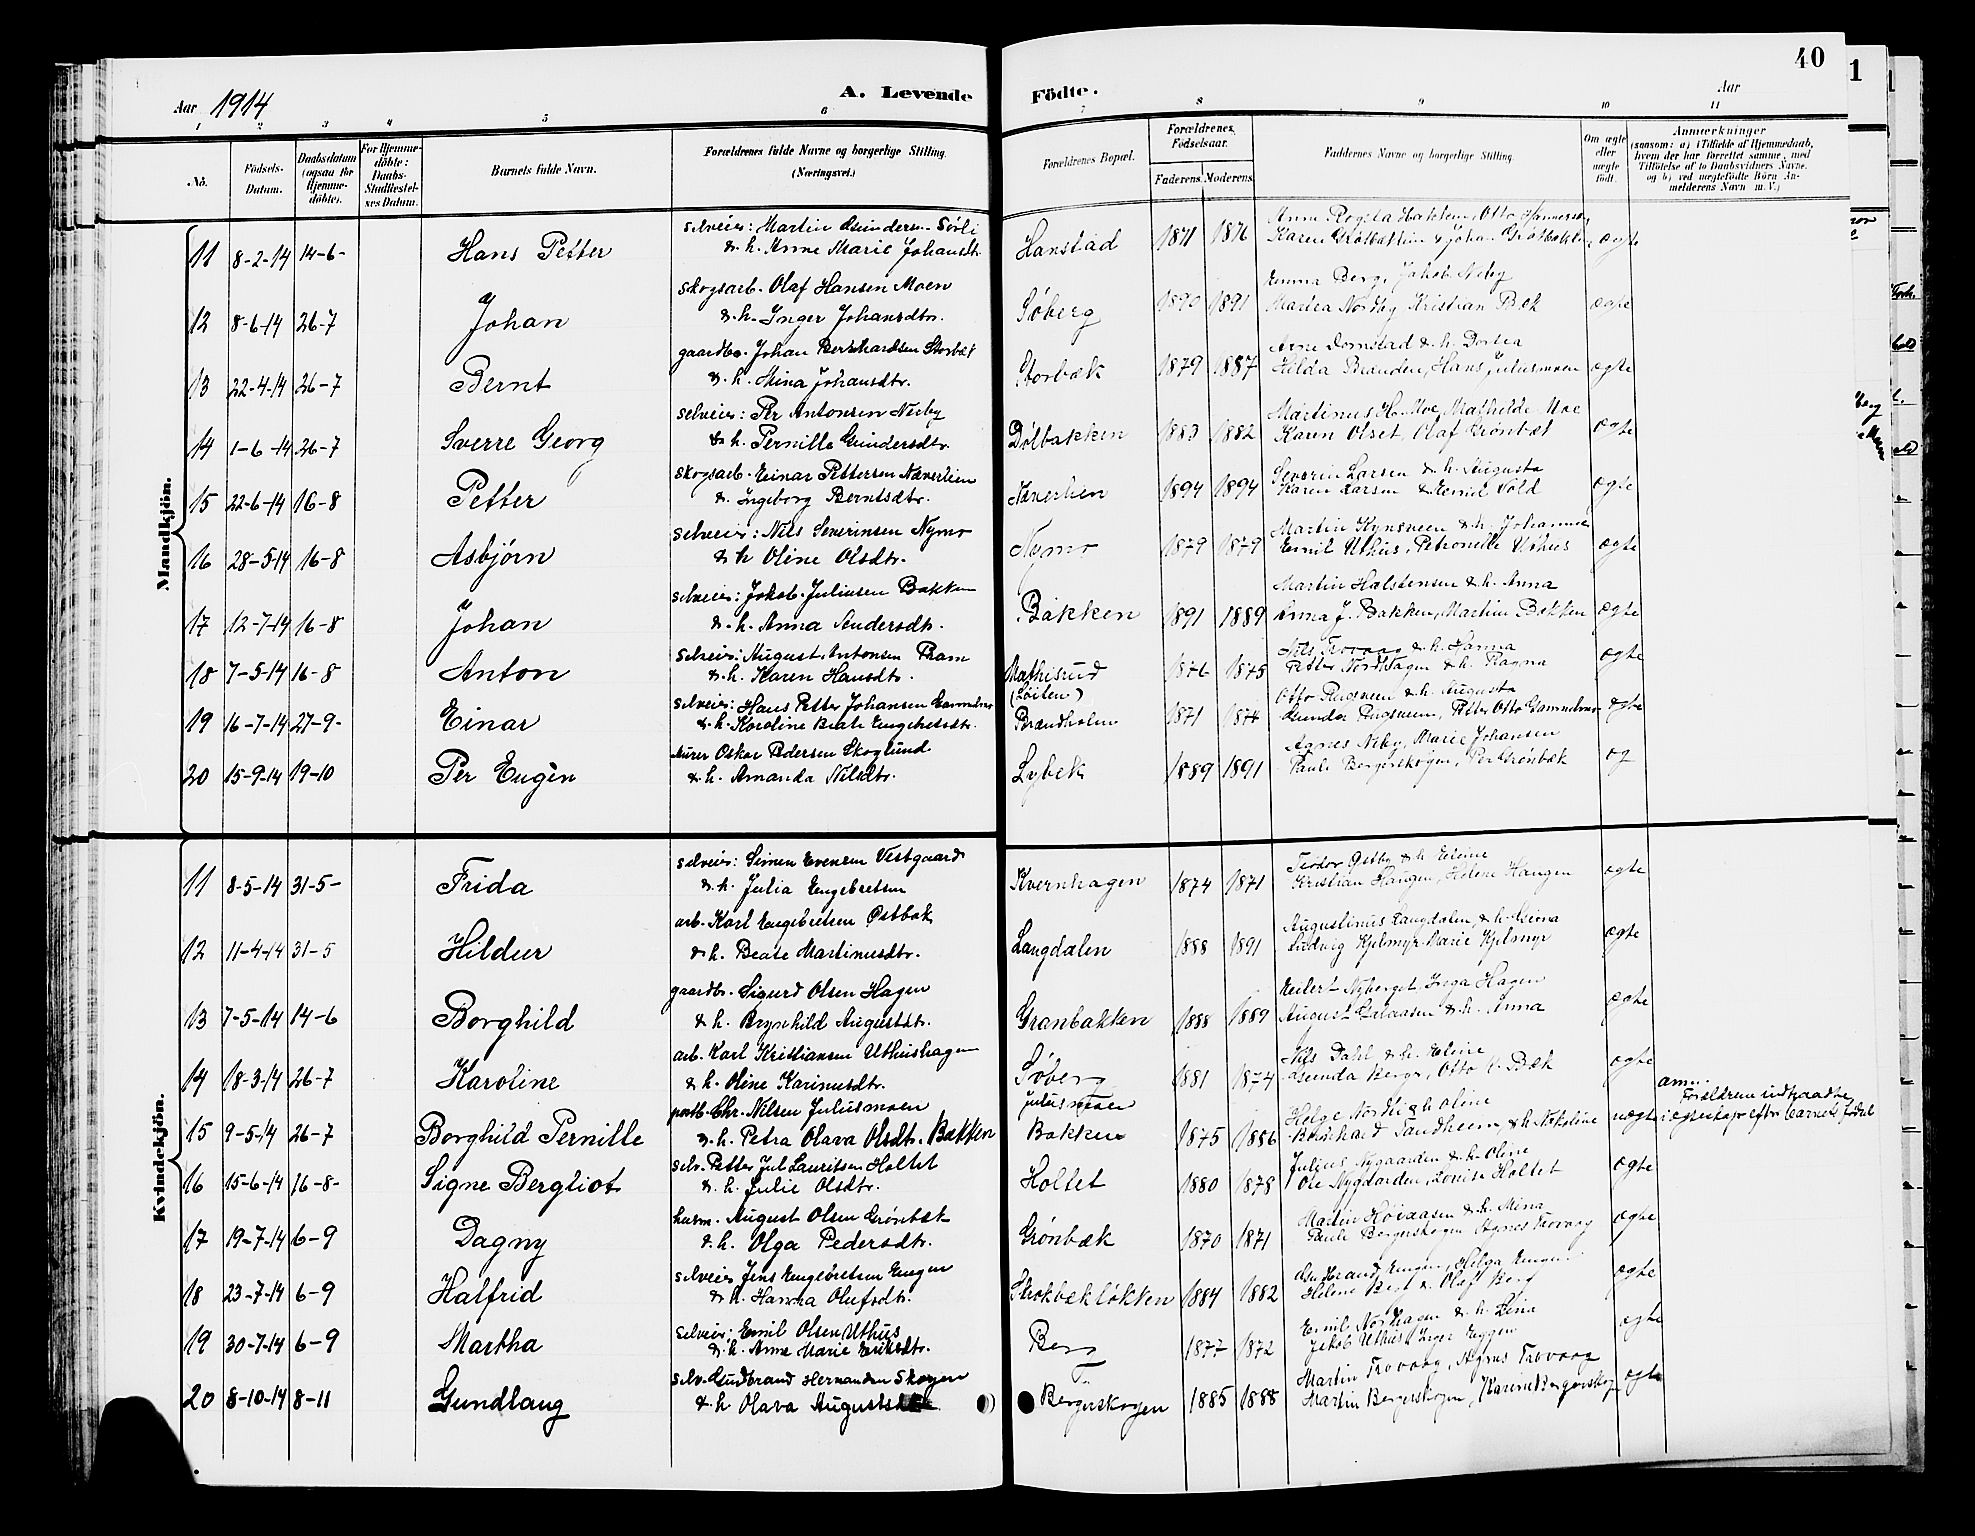 Aar 1914
A. Levende Födte.
40
Aar
1 2 3 4 5 6 7 8 9 10 11
No.
Födsels-Datum.
Daabsdatum (ogsaa for Hjemme-döbte).
For Hjemme-döbte: Daabs-Stadfæstel-ses Datum.
Barnets fulde Navn.
Forældrenes fulde Navne og borgerlige Stilling. (Næringsvei.)
Forældrenes Bopæl.
Forældrenes Födselsaar.
Faderens. Moderens.
Faddernes Navne og borgerlige Stilling.
Om ægte eller uægte födt.
Anmærkninger
(saasom: a) i Tilfælde af Hjemmedaab,
hvem der har forrettet samme, med
Tilföielse af to Daabsvidners Navne,
og b) ved uægtefödte Börn An-
melderens Navn m. V.)
Mandkjön.
selveier: Martin Gundersen Sörli Anne Rogsta Hakken, Otto
11 8-2-14 14-6- Hans Petter & h. Anne Marie Johansdtr. Hanstad 1871 1876 Karen Grötbækken & Johan Grötbækken ægte
skogsarb. Olaf Hansen Moen Emma Berg, Jakob Neby
12 8-6-14 26-7 Johan & h. Inger Johansdtr. Söberg 1890 1891 Martea Nordby Kristian Bæk ægte
gaardbr. Johan Bernhardsen Storbæk Arne Domstad & h. Dortea
13 22-4-14 26-7 Bernt & h. Mina Johansdtr. Storbæk 1879 1887 Hilda Brænden, Hans Julusmoen ægte
selveier: Per Antonsen Neby Martinus H. Moe, Mathilde Moe
14 1-6-14 26-7 Sverre Georg & h. Pernille Gundersdtr. Dölbakken 1883 1882 Karen Olset, Olaf Grönbæk ægte
skogsarb. Einar Pettersen Næverlien Severin Larsen & h. Augusta
15 22-6-14 16-8 Petter & h. Ingeborg Berntsdtr. Næverlien 1894 1894 Karen Larsen & Emil Vold ægte
selveier: Nils Severinsen Nymo Martin Kynsveen & h. Johanna
16 28-5-14 16-8 Asbjörn & h Oline Olsdtr. Nymo 1879 1879 Emil Uthus, Petronelle Uthus ægte
selveier: Jakob Juliusen Bakken Martin Halstensen & h. Anna
17 12-7-14 16-8 Johan & h. Anna Andersdtr. Bakken 1891 1889 Anna J. Bakken, Martin Bakken ægte
selveier: August Antonsen Pram Nils Trovaag & h. Hanna
18 7-5-14 16-8 Anton & h. Karen Hansdtr. Mathisrud (Löiten) 1876 1875 Petter Nordhagen & h. Ragna ægte
selveier: Hans Petter Johansen Gammelmo Otto Rugsveen & h. Augusta
19 16-7-14 27-9- Einar & h. Karoline Beate Engebretsdtr. Brændholen 1871 1874 Gunda Rugsveen, Petter Otto Gammelmo ægte
Murer Oskar Pedersen Skoglund Agnes Neby, Marie Johansen
20 15-9-14 19-10 Per Eugèn & h. Amanda Nilsdtr. Lybek 1889 1891 Pauli Bergerskogen, Per Grönbæk æg
Kvindekjön.
selveier: Simen Evensen Vestgaard Teodor Östby & h. Eline
11 8-5-14 31-5- Frida & h. Julia Engebretsen Kvernhagen 1874 1871 Kristian Haugen, Helene Haugen ægte
arb. Karl Engebretsen Östbæk Augustinus Langdalen, & h.
12 11-4-14 31-5 Hildur & h. Beate Martinusdtr. Langdalen 1888 1891 Ludvig Kjelmyr Marie Kjelmyr ægte
gaardbr. Sigurd Olsen Hagen Eilert Nyberget, Inga Hagen
13 7-5-14 14-6 Borghild & h. Brynhild Augustdtr. Granbakken 1888 1889 August & h. Anna ægte
arb. Karl Kristiansen Uthushagen Nils Dahl & h. Eline
14 18-3-14 26-7 Karoline & h. Oline Karinusdtr. Söberg 1881 1874 Gunda Berge, Otto K. Bæk ægte
postb. Chr. Nilsen Julusmoen Julusmoen Helge Nordli & h Oline
anm. Forældrene indtraadte
15 9-5-14 26-7 Borghild Pernille & h. Petra Olava Olsdtr. Bakken Bakken 1875 1886 Bernhard Sandheim & h Nikoline uægte i ægteskap efter barnets födsel
selv. Petter Jul Lauritsen Holtet Julius Nygaarden & h. Oline
16 15-6-14 16-8- Signe Bergliot & h. Julie Olsdtr. Holtet 1880 1878 Ole Nygaarden, Louise Holtet ægte
husm. August Olsen Grönbæk Martin & h. Mina
17 19-7-14 6-9 Dagny & h. Olga Pedersdtr. Grönbæk 1870 1871 Pauli Bergerskogen Agnes Trovaag ægte
selveier Jens Engebretsen Engen Gudbrand Engen, Helga Engen
18 23-7-14 6-9 Halfrid & h. Hanna Olufsdtr. Skokbækløkken 1884 1882 Helene Berg & Olaf Berg ægte
selveier: Emil Olsen Uthus Emil Nordhagen & h. Lina
19 30-7-14 6-9 Martha & h. Anne Marie Eriksdtr. Berg 1877 1872 Jakob Uthus Inger Eggen ægte
selv. Gudbrand Hermansen Skogen Martin Trovaag, Agnes Trovaag
20 8-10-14 8-11 Gundlaug & h Olava Bergerskogen 1885 1888 Martin Bergerskogen, Karen Bergerskog ægte